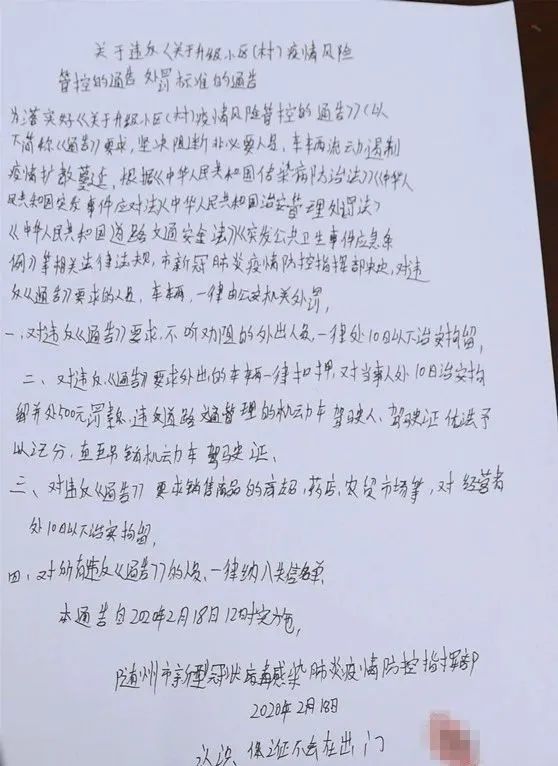 关于违反《关于升级小区(村)疫情风险
管控的通告 处罚标准的通告
为落实好《关于升级小区(村)疫情风险管控的通告》(以
下简称《通告》)要求,坚决阻断非必要人员、车辆流动遏制
疫情扩散蔓延,根据《中华人民共和国传染病防治法》《中华人
民共和国突发事件应对法》《中华人民共和国治安管理处罚法》
《中华人民共和国道路交通安全法》《突发公共卫生事件应急条
例》等相关法律法规,市新冠肺炎疫情防控指挥部决定,对违
反《通告》要求的人员、车辆,一律由公安机关处罚,
一、对违反《通告》要求,不听劝阻的外出人员,一律处10日以下治安拘留,
二、对违反《通告》要求外出的车辆一律扣押,对当事人处10日治安拘
留并处500元罚款,违反道路交通管理的机动车驾驶人、驾驶证依法予
以记分,直至吊销机动车驾驶证、
三、对违反《通告》要求销售商品的商超、药店、农贸市场等,对经营者
处10日以下治安拘留,
四、对所有违反《通告》的人员、一律纳入失信名单.
本通告自2020年2月18日12时实施,
随州市新型冠状病毒感染肺炎疫情防控指挥部
2020年2月18日
认识、保证不会在出门